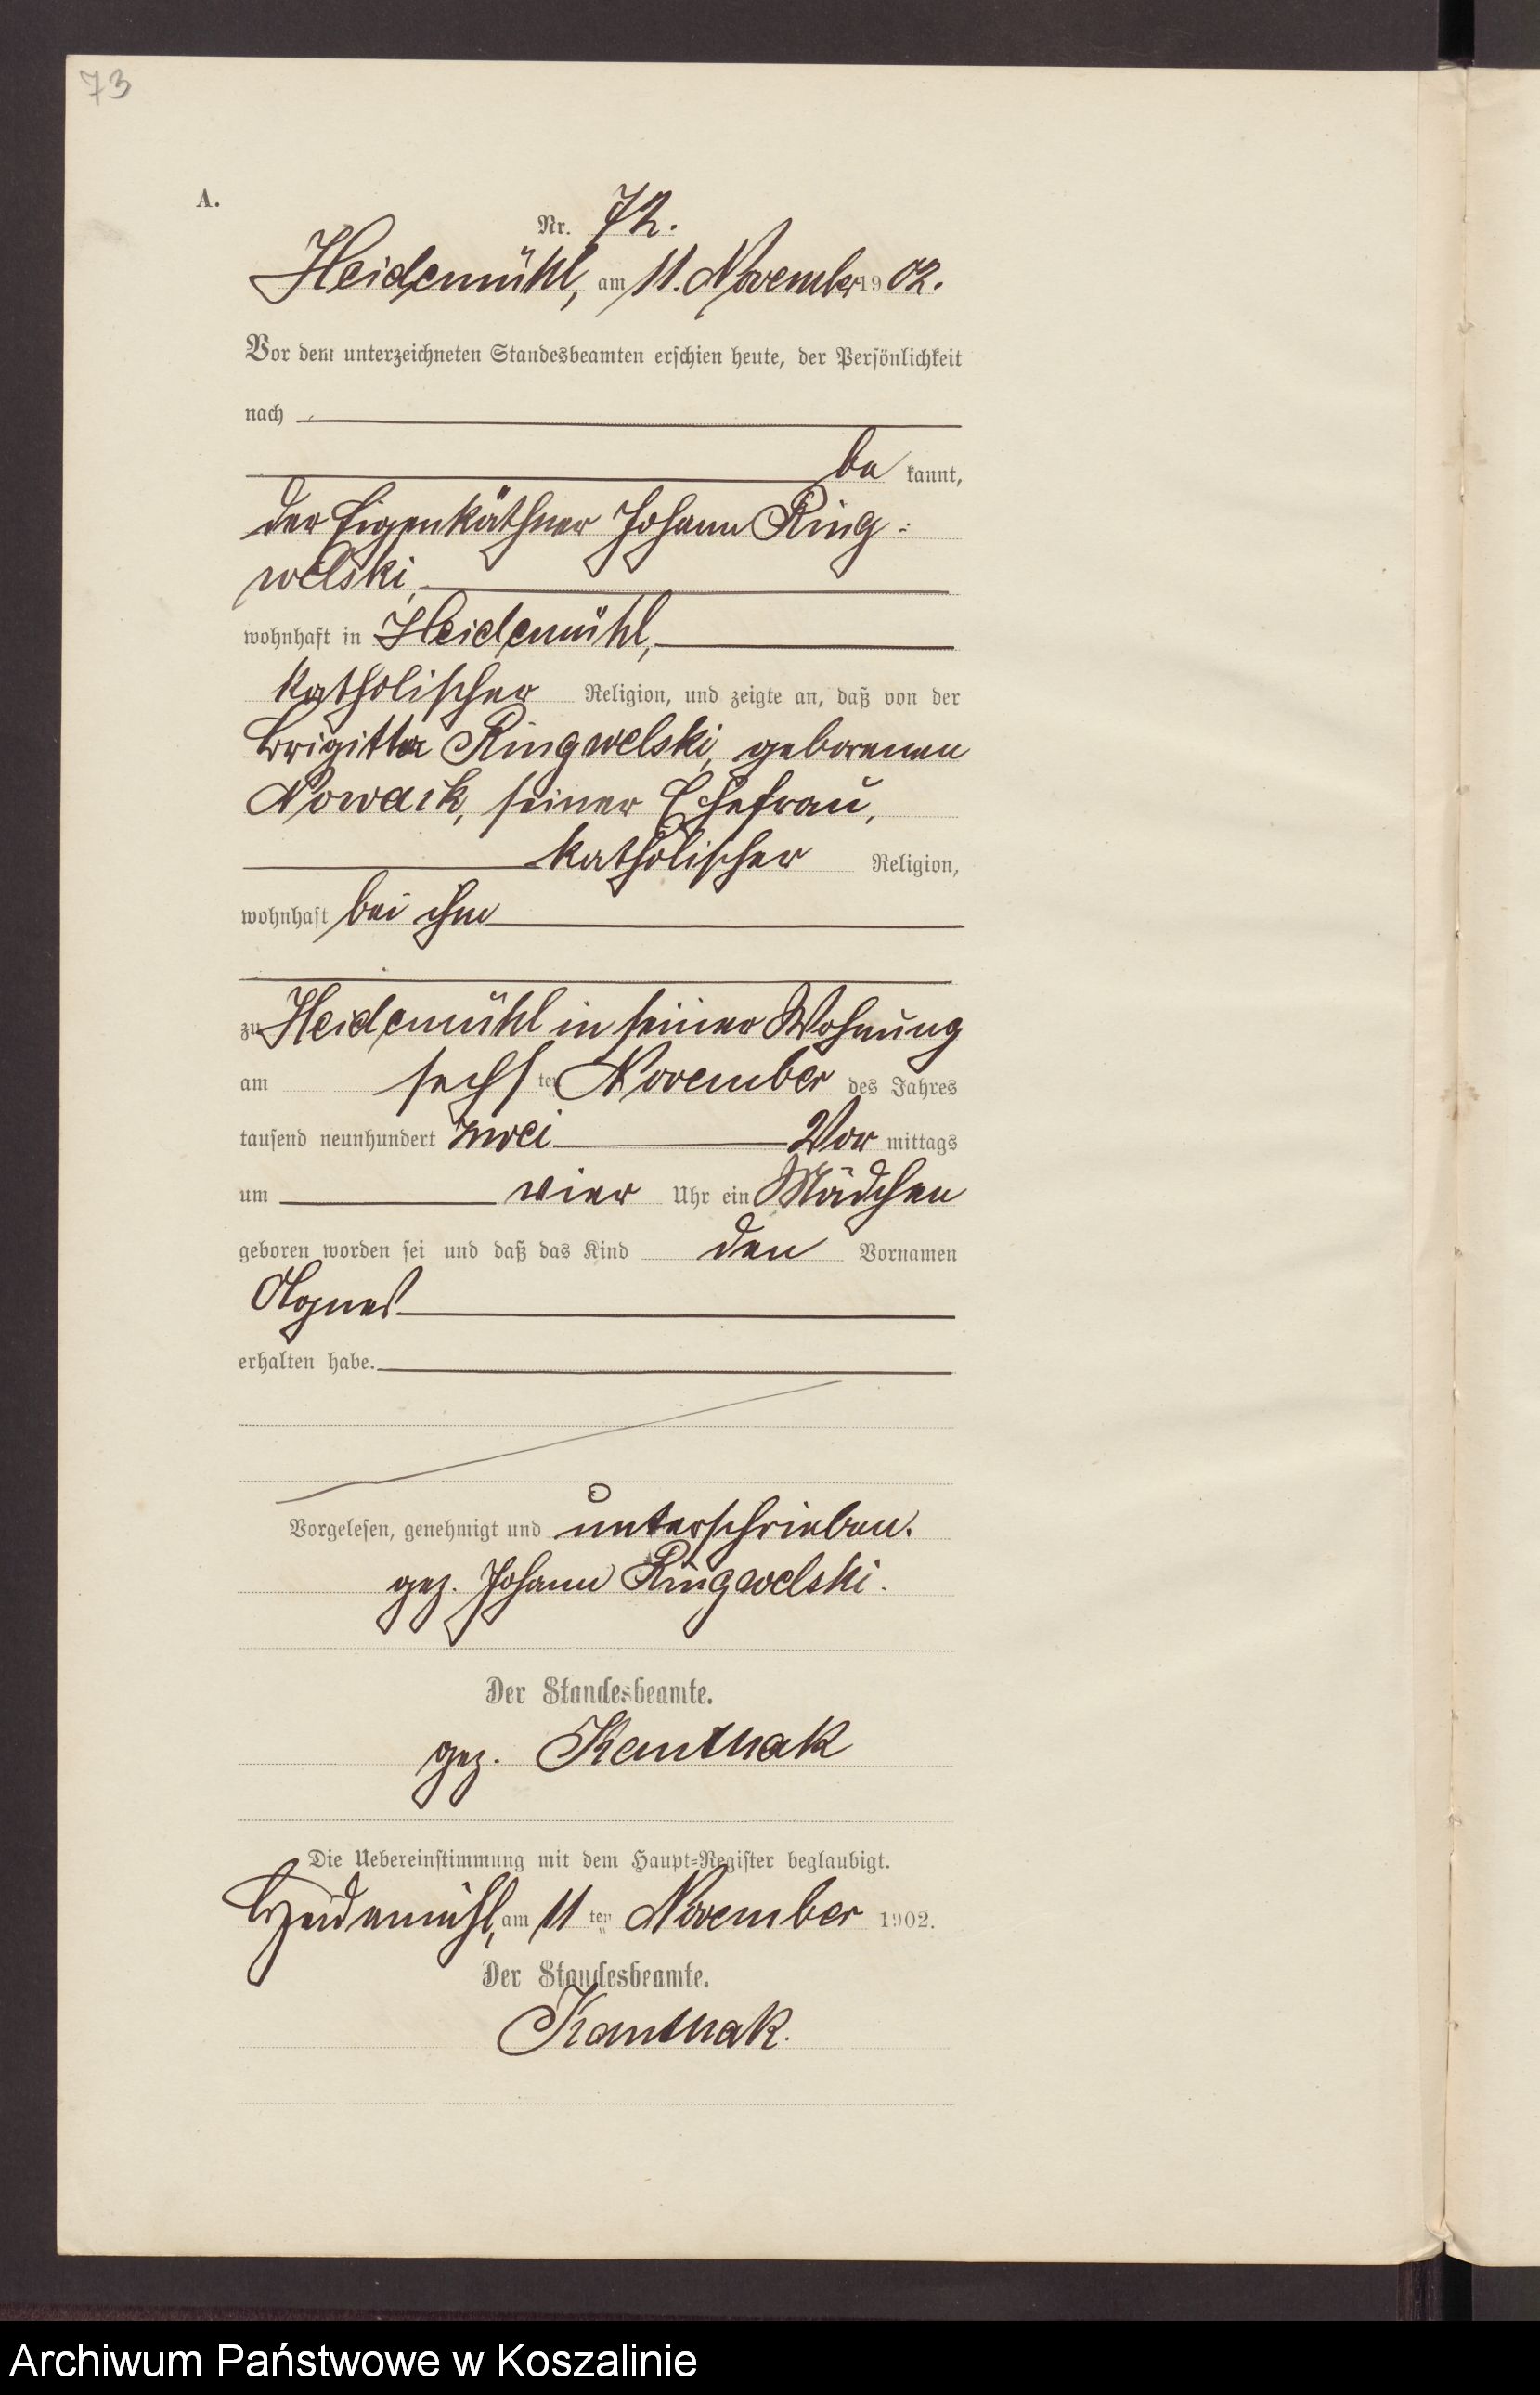 73
A.
Nr. 72.
Heidemühl, am 11. November 1902.
Vor dem unterzeichneten Standesbeamten erschien heute, der Persönlichkeit
nach
be kannt,
der Eigenkäthner Johann Ring-
welski,
wohnhaft in Heidemühl,
katholischer Religion, und zeigte an, daß von der
Brigitta Ringwelski, geborenen
Nowack, seiner Ehefrau,
katholischer Religion,
wohnhaft bei ihm
zu Heidemühl in seiner Wohnung
am sechsten November des Jahres
tausend neunhundert zwei Vor mittags
um vier Uhr ein Mädchen
geboren worden sei und daß das Kind den Vornamen
Agnes
erhalten habe.
Vorgelesen, genehmigt und unterschrieben.
gez. Johann Ringwelski.
Der Standesbeamte.
gez. Kanthak
Die Uebereinstimmung mit dem Haupt-Register beglaubigt.
Heidemühl, am 11ten November 1902.
Der Standesbeamte.
Kanthak.
Archiwum Państwowe w Koszalinie